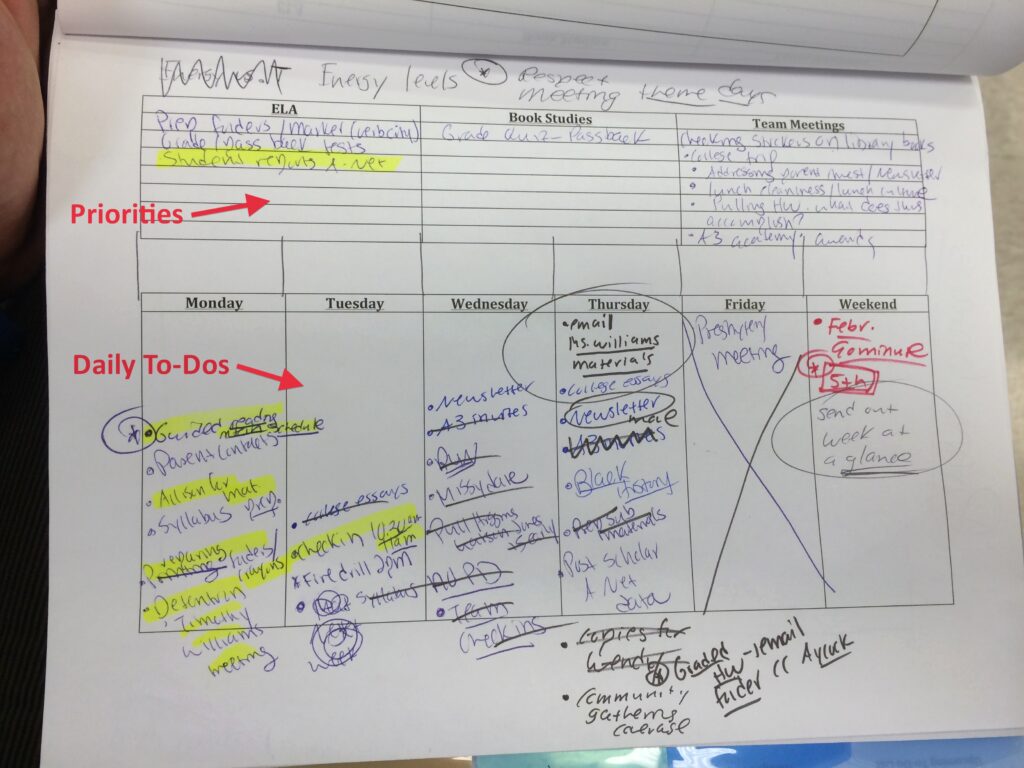 Energy levels * Respect
meeting theme days
ELA
Book Studies
Team Meetings
Prep folders/marker (velocity)
Grade/pass back tests
Student reports A-Net
Grade Quiz - Passback
Checking stickers on library books
• College trip
• Addressing parent invest/Newsletter
• lunch cleanliness/lunch culture
• Pulling HW. what does this
accomplish?
• A3 academy awards
Priorities
Monday
Tuesday
Wednesday
Thursday
Friday
Weekend
Daily To-Dos
* • Guided reading
schedule
• Parent contacts
• Syllabus prep.
• preparing folders/
crayons
• Detention
Timothy
Williams
meeting
• college essays
• Check in 10:30
11am
* Fire drill 2pm
• Syllabus
week
• Newsletter
• A3 invites
• Missy dare
• Pull
• PD
• Team
Check ins
• email
Ms. Williams
materials
• College essays
• Newsletter
more
• Black
History
• Prep sub
materials
• Post Scholar
A Net
data
• copies for
Wendy
• Community
gathering
coverage
* Graded
HW - email
folder cc Aycock
Presbytery
meeting
• Febr.
90 minute
* 5th
send out
week at
a glance